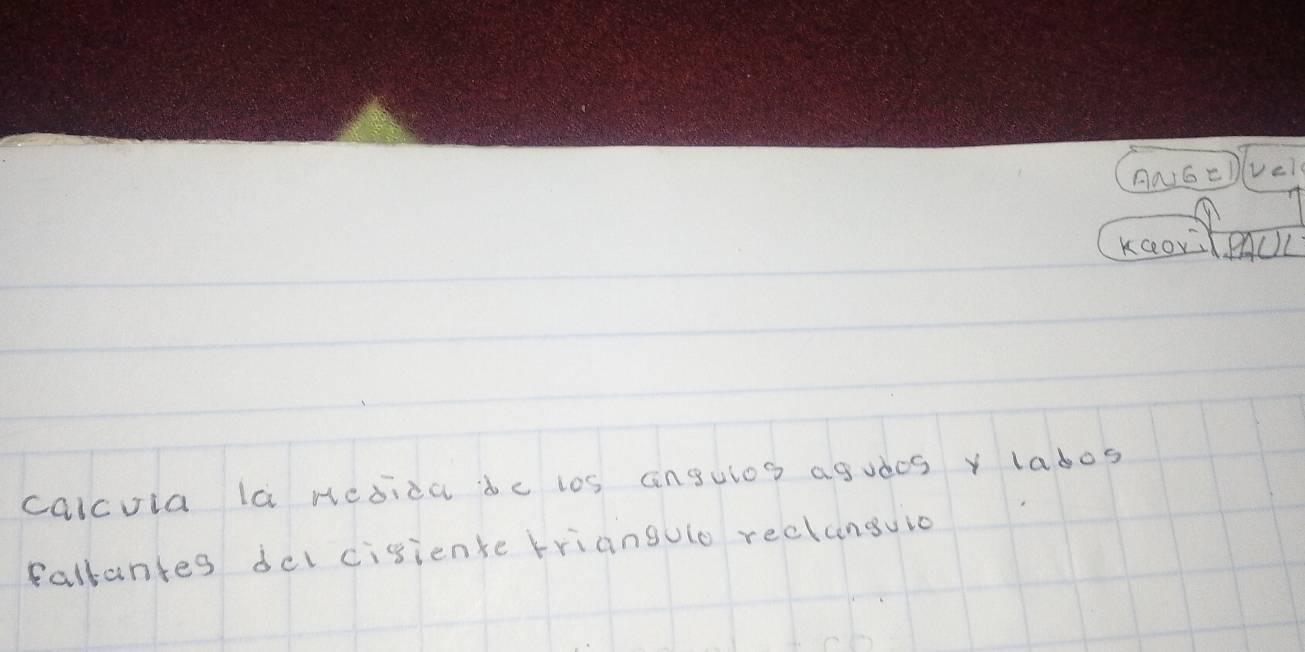 ANGEl Vel
Kaori PAUL
calcula la medida de los angulos agudos y lados
faltantes del cisiente triangulo reclangulo